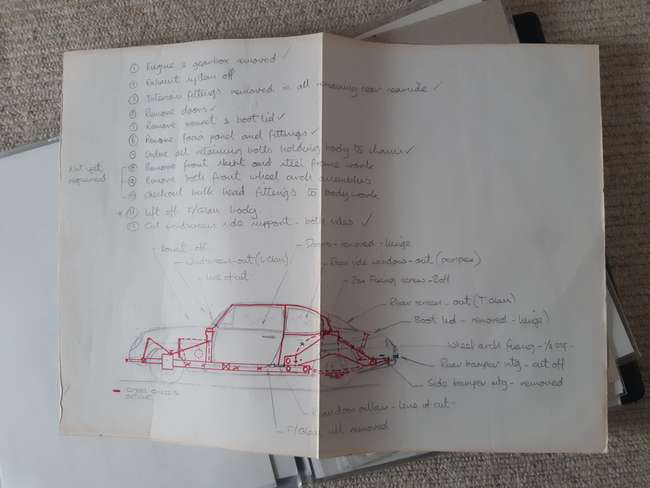 ① Engine & gearbox removed ✓
② Exhaust system off
③ Interior fittings removed in all remaining rear ✓
④ Remove doors ✓
⑤ Remove bonnet & boot lid ✓
⑥ Remove facia panel and fittings ✓
⑦ all retaining bolts holding body to chassis ✓
Not yet required
⑧ Remove front skirt and steel frame work
⑨ Remove both front wheel arch assemblies
⑩ Checkout bulk head fittings to bodywork
* ⑪ Lift off F/Glass body
⑫ Cut windscreen side support - both sides ✓
Bonnet - off
Windscreen - out (L.Glass)
Line of cut
Doors - removed - hinge
Rear side windows - out (perspex)
Fixing screw - 2off
Rear screen - out (T.Glass)
Boot lid - removed - hinge)
Wheel arch fixing - 1/4
Rear bumper mtg - cut off
Side bumper mtg - removed
Rear door pillar - Line of cut -
F/Glass sill removed
STEEL CHASSIS OUTLINE